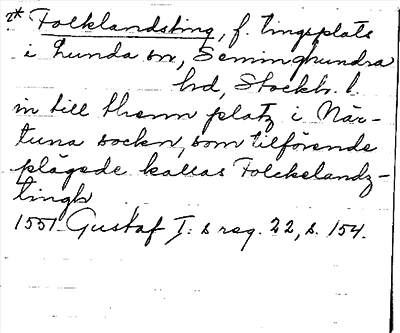 2* Folklandsting, f. tingsplats
i Lunda sn, Seminghundra
hrd, Stockh. l.
in till thenn platz i När-
tuna sockn, som tilförende
plägede kallas Folckelandz-
tingh
1551 Gustaf I: s reg. 22, s. 154.